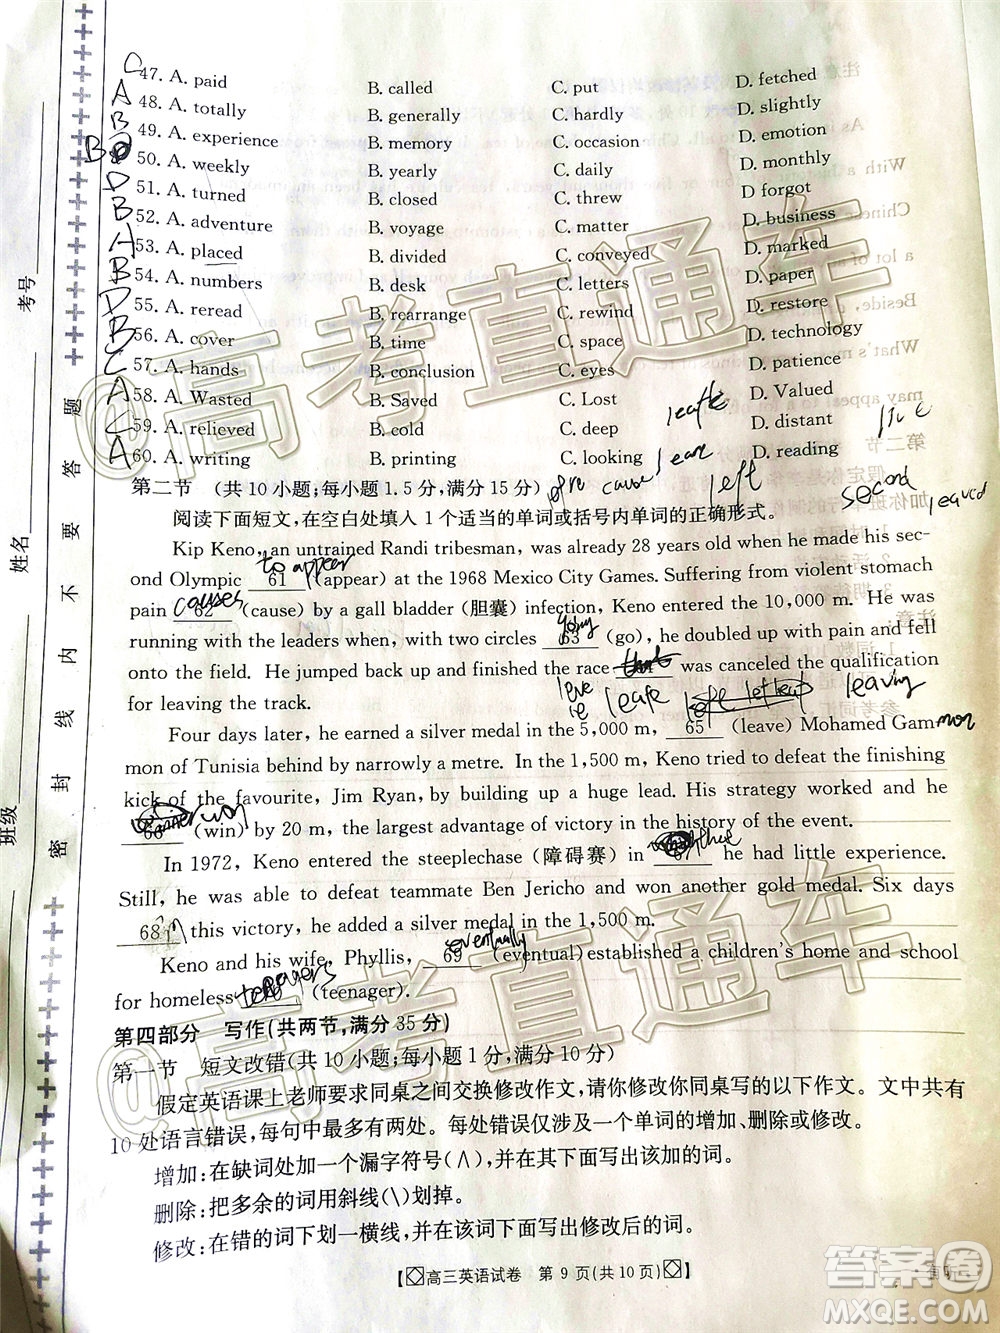 C 47. A. paid B. called C. put D. fetched
A 48. A. totally B. generally C. hardly D. slightly
B 49. A. experience B. memory C. occasion D. emotion
B 50. A. weekly B. yearly C. daily D. monthly
D 51. A. turned B. closed C. threw D forgot
B 52. A. adventure B. voyage C. matter D. business
A 53. A. placed B. divided C. conveyed D. marked
B 54. A. numbers B. desk C. letters D. paper
D 55. A. reread B. rearrange C. rewind D. restore
B 56. A. cover B. time C. space D. technology
C 57. A. hands B. conclusion C. eyes D. patience
A 58. A. Wasted B. Saved C. Lost D. Valued
C 59. A. relieved B. cold C. deep D. distant
A 60. A. writing B. painting C. looking D. reading
第二节 (共10小题;每小题1.5分,满分15分)
cause left second leaved
阅读下面短文,在空白处填入1个适当的单词或括号内单词的正确形式。
Kip Keno, an untrained Randi tribesman, was already 28 years old when he made his sec-
to appear
ond Olympic 61 (appear) at the 1968 Mexico City Games. Suffering from violent stomach
causes
pain 62 (cause) by a gall bladder (胆囊) infection, Keno entered the 10,000 m. He was
going
running with the leaders when, with two circles 63 (go), he doubled up with pain and fell
onto the field. He jumped back up and finished the race that was canceled the qualification
leaving
for leaving the track.
Four days later, he earned a silver medal in the 5,000 m, 65 (leave) Mohamed Gam-
mon of Tunisia behind by narrowly a metre. In the 1,500 m, Keno tried to defeat the finishing
kick of the favourite, Jim Ryan, by building up a huge lead. His strategy worked and he
won
66 (win) by 20 m, the largest advantage of victory in the history of the event.
In 1972, Keno entered the steeplechase (障碍赛) in that he had little experience.
Still, he was able to defeat teammate Ben Jericho and won another gold medal. Six days
68 in this victory, he added a silver medal in the 1,500 m.
eventually
Keno and his wife, Phyllis, 69 (eventual) established a children's home and school
teenagers
for homeless (teenager).
第四部分 写作(共两节,满分35分)
第一节 短文改错(共10小题;每小题1分,满分10分)
假定英语课上老师要求同桌之间交换修改作文,请你修改你同桌写的以下作文。文中共有
10处语言错误,每句中最多有两处。每处错误仅涉及一个单词的增加、删除或修改。
增加:在缺词处加一个漏字符号(∧),并在其下面写出该加的词。
删除:把多余的词用斜线(\)划掉。
修改:在错的词下划一横线,并在该词下面写出修改后的词。
【高三英语试卷 第9页(共10页)】
考号
姓名
班级
密封线内不要答题
@高考直通车
@高考直通车
答案圈
MXQE.COM